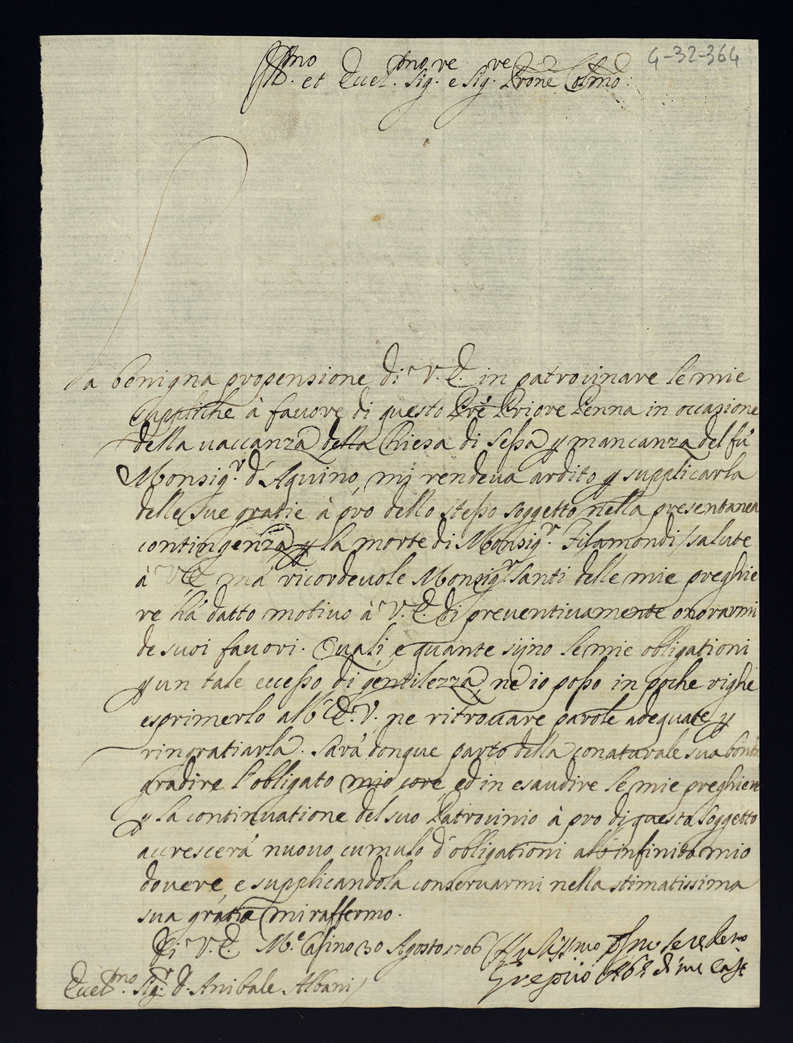 4-32-364
Ill.mo et Eccel.mo Sig.re e Sig.re P̄rone Col.mo
La benigna propensione di V. E. in patrocinare le mie
suppliche à favore di questo P̄re Priore Penna in occasione
della vaccanza della Chiesa di Sessa p mancanza del fù
Monsig.r d'Aquino, mi rendeva ardito p supplicarla
delle sue gratie à prò dello stesso soggetto nella presentanea
contingenza p la morte di Monsig.r Filamondi (salute
à V. E. mà ricordevole Monsig.r Santi delle mie preghie
re hà datto motivo à V. E. di preventivamente onorarmi
de suoi favori. Quali, e quante sijno le mie obligationi
p un tale eccesso di gentilezza, ne io posso in poche righe
esprimerlo all' E. V. ne ritrovare parole adequate p
ringratiarla. Sarà donque parto della conaturale sua bontà
gradire l'obligato mio core, ed in esaudire le mie preghiere
p la continuatione del suo Patrocinio à pro di questo soggetto
accrescerà nuovo cumulo d'obligationi all'infinito mio
dovere, e supplicandola conservarmi nella stimatissima
sua gratia mi raffermo.
Di V. E. M.e Casino 30 Agosto 1706
Gregorio Ab.e di M. Cas.
Eccel.mo Sig.r D. Anibale Albani